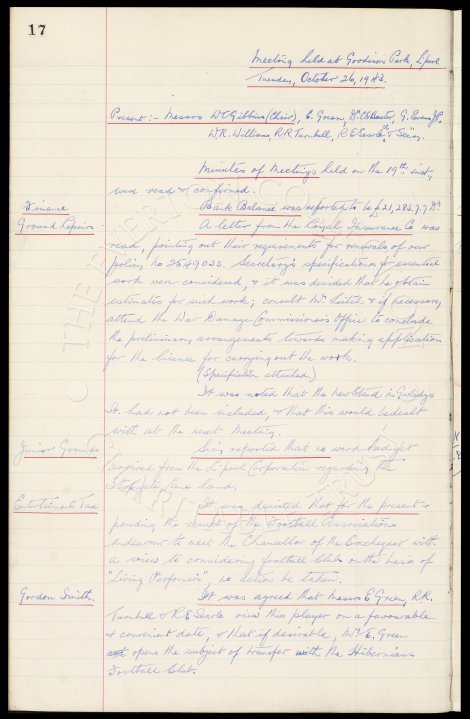 17
Meeting held at Goodison Park, Lpool
Tuesday, October 26, 1943.
Present :- Messrs W.C. Gibbins (Chair), E. Green, Dr. C.S. Baxter, G. Evans J.P.
W.R. Williams, R.R. Turnbull, R.E. Searle, & Secy.
Minutes of Meetings held on the 19th inst,
were read & confirmed.
Finance
Bank Balance was reported to be £21,282.7.7 Dr
Ground Repairs
A letter from the Royal Insurance Co was
read, pointing out their requirements for renewals of our
policy no 2549033. Secretary's specifications for essential
work were considered, & it was decided that he obtain
estimates for such work; consult Mr Leitch & if necessary
attend the War Damage Commissioners Office to conclude
the preliminary arrangements towards making application
for the licence for carrying out the work.
(Specification attached)
It was noted that the new Stand in Gwladys
St. had not been included, & that this would be dealt
with at the next meeting.
Junior Grounds
Secy. reported that no word had yet
arrived from the L'pool Corporation regarding the
Stopgate Lane land.
Entertainments Tax
It was decided that for the present &
pending the result of the Football Associations
endeavour to meet the Chancellor of the Exchequer with
a view to considering football Clubs on the basis of
"Living Performers", no action be taken.
Gordon Smith.
It was agreed that Messrs E Green, R.R.
Turnbull & R E Searle view this player on a favourable
& convenient date, & that if desirable, Mr. E. Green
opens the subject of transfer with the Hibernians
Football Club.
THE EVERTON